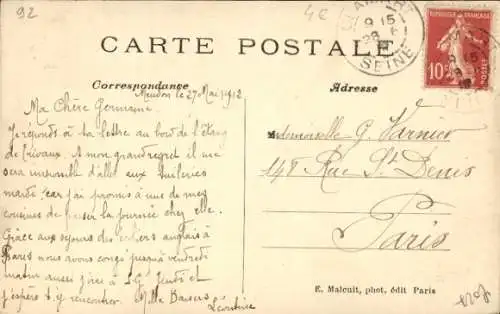 92
4€
9 15
28 5
SEINE
CARTE POSTALE
Correspondance
Adresse
10
Meudon le 27 Mai 1912
Ma Chère Germaine
Je réponds à ta lettre au bord de l'Etang
de Trivaux. A mon grand regret il me
sera impossible d'aller aux Tuileries
mardi car j'ai promis à une de mes
cousines de passer la journée chez elle.
Grâce aux séjours des anglais à
Paris nous avons congé jusqu'à vendredi
matin aussi j'irai à St Jeudi et
j'espère t'y rencontrer. Mille Baisers
Léontine
Mademoiselle G. Varnier
148 Rue St Denis
Paris
E. Malcuit, phot, édit Paris